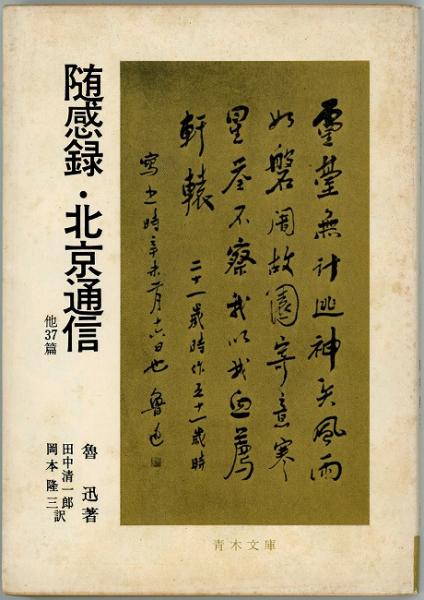 随感録・北京通信
他37篇
魯迅著
田中清一郎
岡本隆三訳
靈臺無計逃神矢風雨
如磐闇故園寄意寒
星荃不察我以我血薦
軒轅
二十一歳時作五十一歳時
寫之時辛未二月十六日也 魯迅
青木文庫